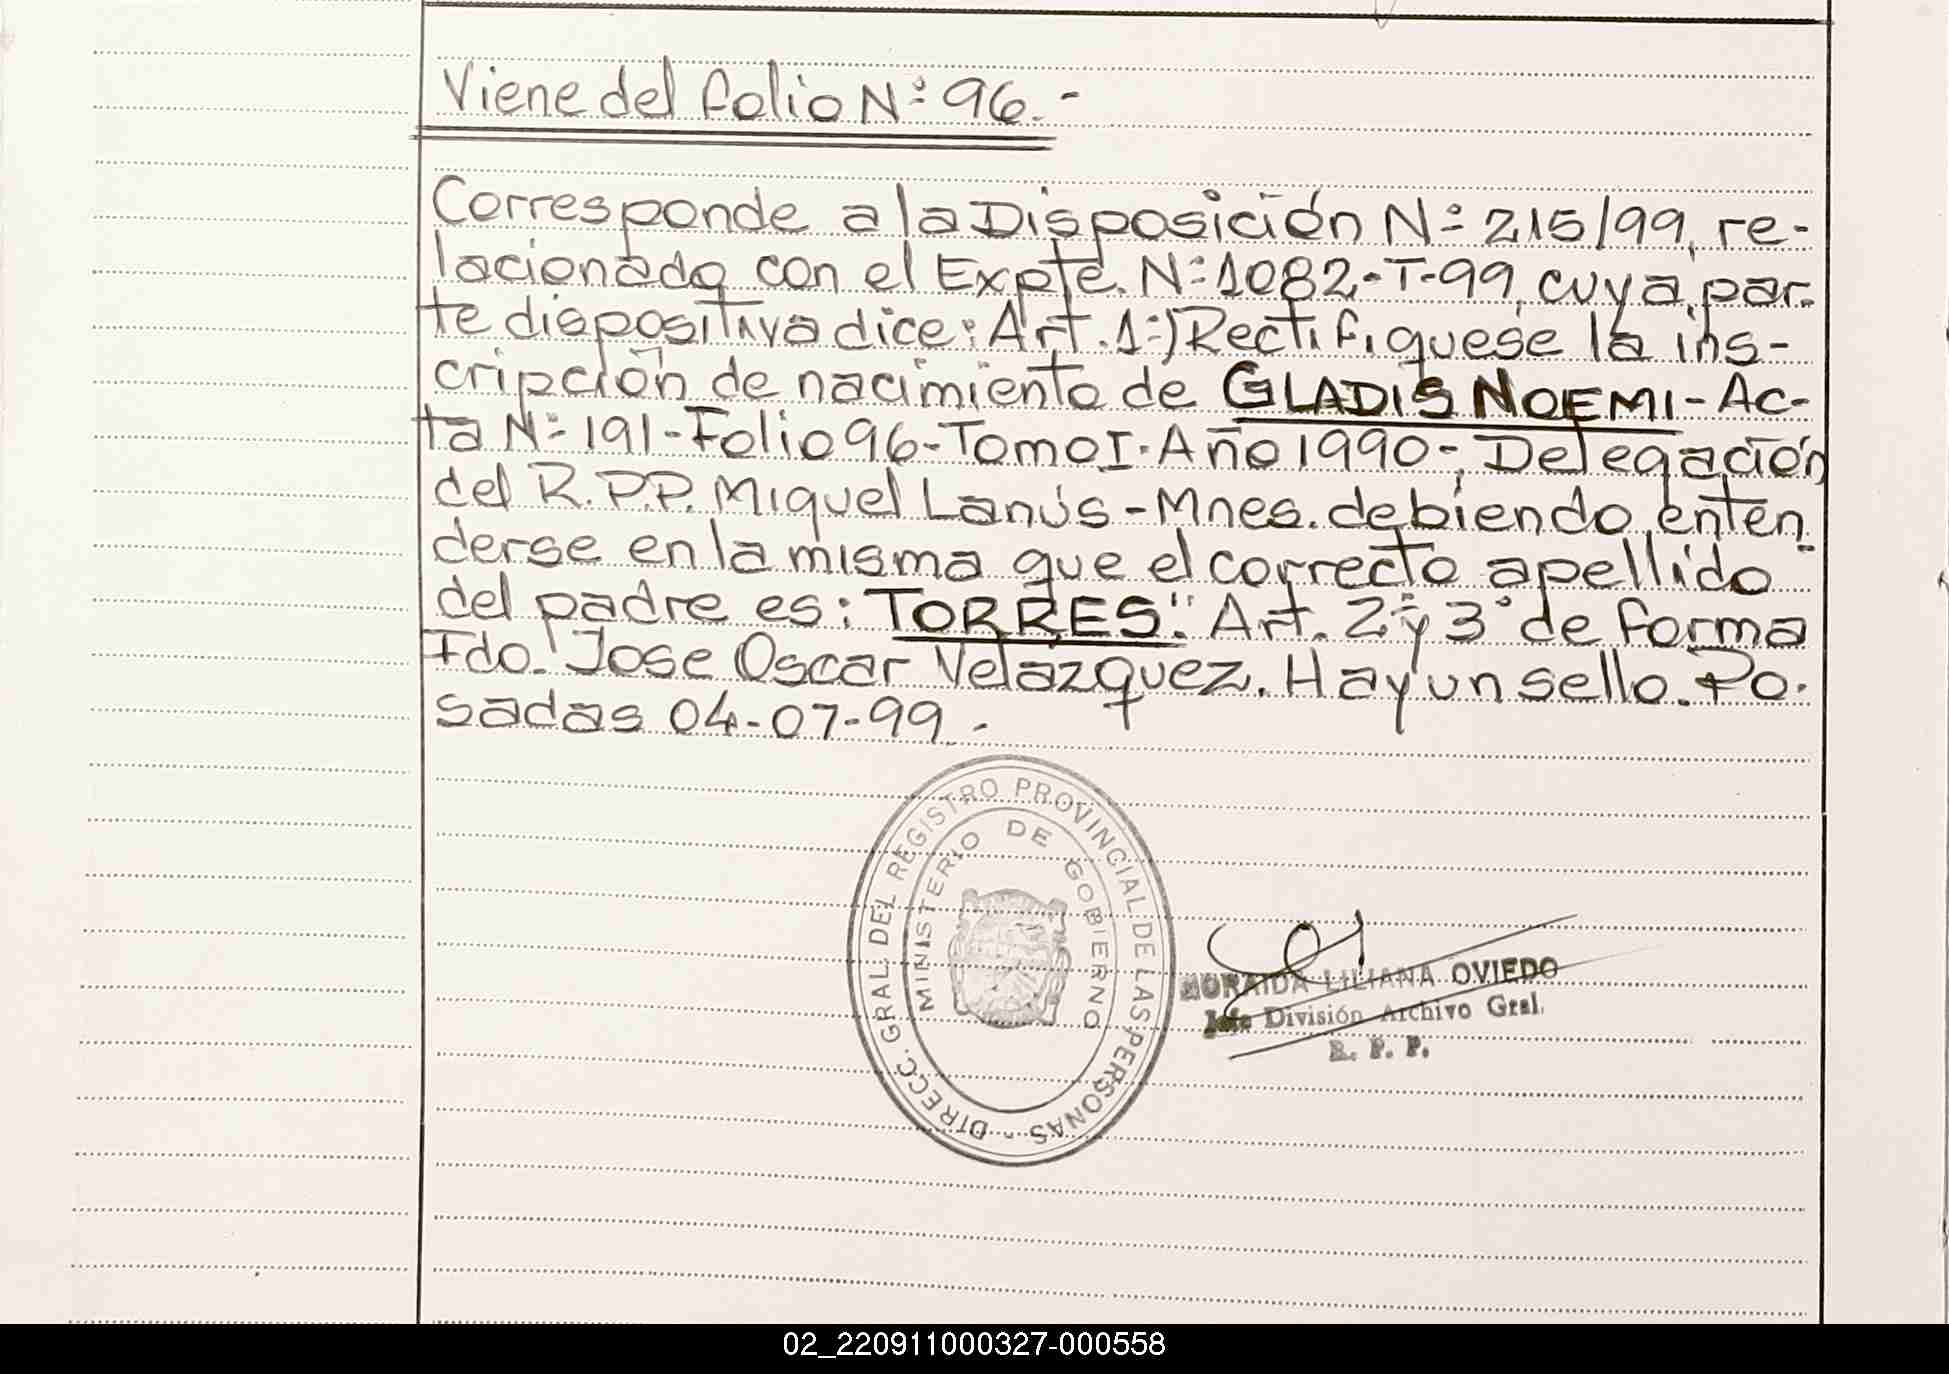 Viene del folio Nº 96.-
Corresponde a la Disposición Nº 215/99, re-
lacionado con el Expte. Nº 1082-T-99, cuya par-
te dispositiva dice: Art. 1º) Rectifiquese la ins-
cripción de nacimiento de GLADIS NOEMI - Ac-
ta Nº 191 - Folio 96 - Tomo I - Año 1990-, Delegación
del R.P.P. Miguel Lanús - Mnes. debiendo enten
derse en la misma que el correcto apellido
del padre es: TORRES". Art. 2º y 3º de forma
Fdo. Jose Oscar Velazquez. Hay un sello. Po-
sadas 04-07-99.-
DIRECC. GRAL. DEL REGISTRO PROVINCIAL DE LAS PERSONAS -
MINISTERIO DE GOBIERNO
MORAIDA LILIANA OVIEDO
Jefe División Archivo Gral.
R. P. P.
02_220911000327-000558